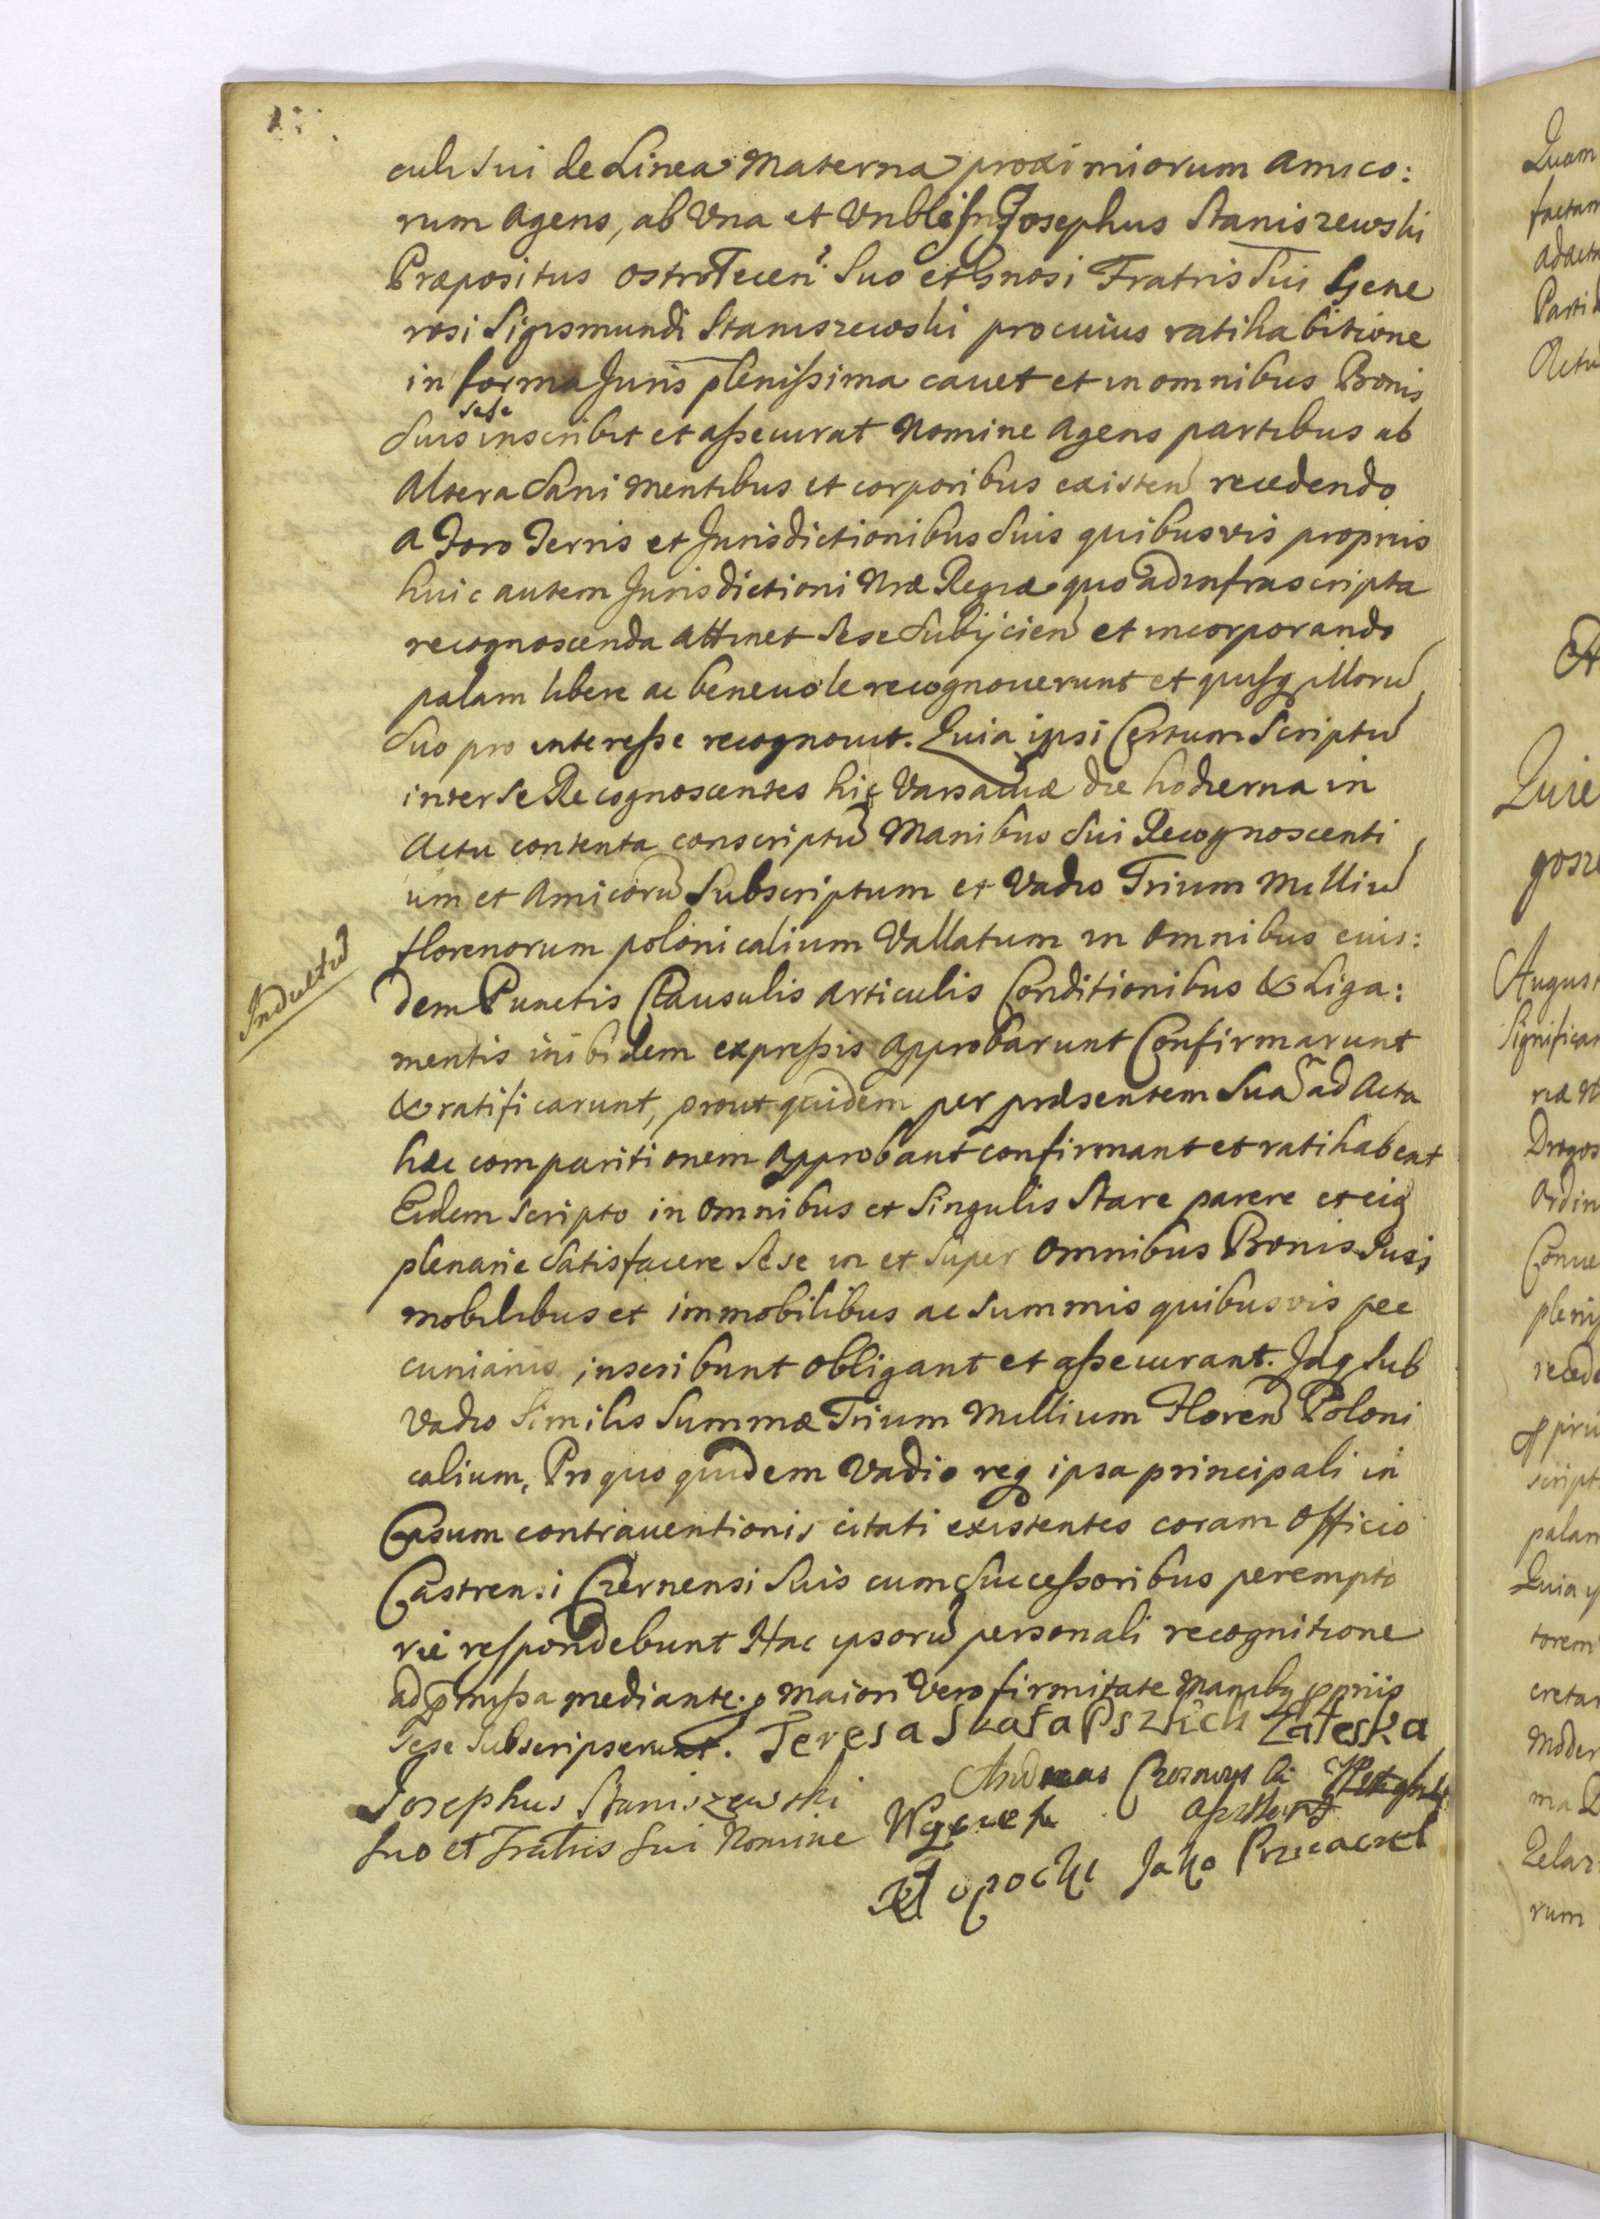 culi sui de Linea Materna proximiorum Amico:
rum Agens, ab Una et Vnblis Josephus Staniszewski
Præpositus Suo et Gnosi Fratris Sui Gene
rosi Sigismundi Staniszewski pro cuius ratihabitione
in forma Juris plenissima cauet et in omnibus Bonis
Suis sese inscribit et assecurat Nomine Agens partibus ab
Altera Sani Mentibus et corporibus existen recedendo
A Foro Terris et Jurisdictionibus Suis quibusvis propriis
huic autem Jurisdictioni Nræ Regiæ quo ad infrascripta
recognoscenda Attinet Sese Subijcien et incorporando
palam libere ac beneuole recognouerunt et quisq illoru
Suo pro interesse recognouit. Quia ipsi Certum Scriptu
inter Se Recognoscentes hic Varsaviæ die hodierna in
Actu contenta conscriptu Manibus Sui Recognoscenti
um et Amicoru Subscriptum et Vadio Trium Milliu
florenorum polonicalium Vallatum in omnibus eius:
Indultu
dem Punctis Clausulis Articulis Conditionibus & Liga:
mentis inibidem expressis Approbarunt Confirmarunt
& ratificarunt, prout quidem per præsentem Sua ad Acta
hæc comparitionem Approbant confirmant et ratihabent
Eidem Scripto in omnibus et Singulis Stare parere et eiq
plenarie Satisfacere Sese in et Super omnibus Bonis Suis
mobilibus et immobilibus ac Summis quibusvis pec
cuniariis inscribunt obligant et assecurant. Idq Sub
Vadio Similis Summæ Trium Millium Floren Poloni
calium, Pro quo quidem Vadio req ipsa principali in
Casum contrauentionis citati existentes coram Officio
Castrensi Czernensi Suis cum Successoribus perempto
rie respondebunt Hac ipsoru personali recognitione
ad præmissa mediante. p Maiori Vero firmitate Manibq ppriis
Sese Subscripserunt. Teresa Zaleska
Josephus Staniszewski
Suo et Fratris Sui Nomine
Jako Przÿiaciel